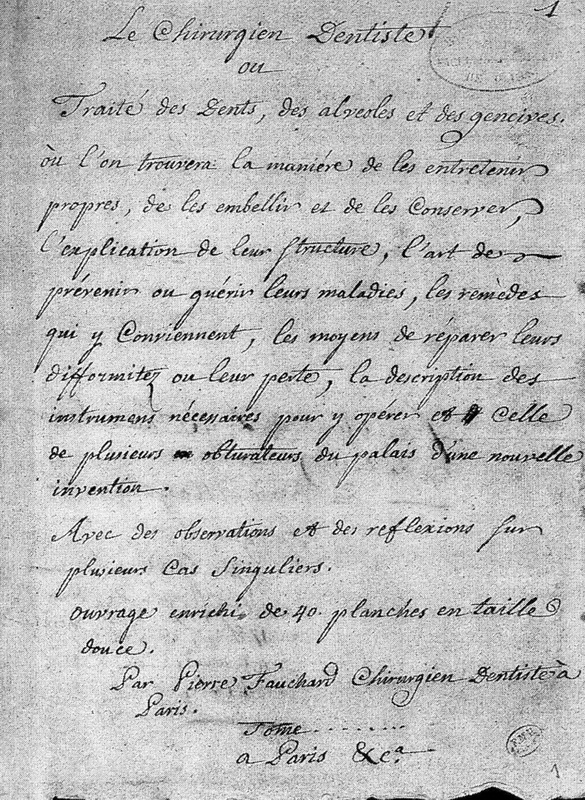 1
Le Chirurgien Dentiste
ou
Traité des Dents, des alveoles et des gencives.
où l'on trouvera la maniére de les entretenir
propres, de les embellir et de les Conserver,
l'explication de leur structure, l'art de
prévenir ou guérir leurs maladies, les remèdes
qui y Conviennent, les moyens de réparer leurs
difformitez ou leur perte, la description des
instrumens nécessaires pour y opérer et celle
de plusieurs obturateurs du palais d'une nouvelle
invention.
Avec des observations et des reflexions sur
plusieurs Cas Singuliers.
ouvrage enrichi de 40 planches en taille
douce.
Par Pierre Fauchard Chirurgien Dentiste à
Paris.
Tome........
a Paris &c.a
1